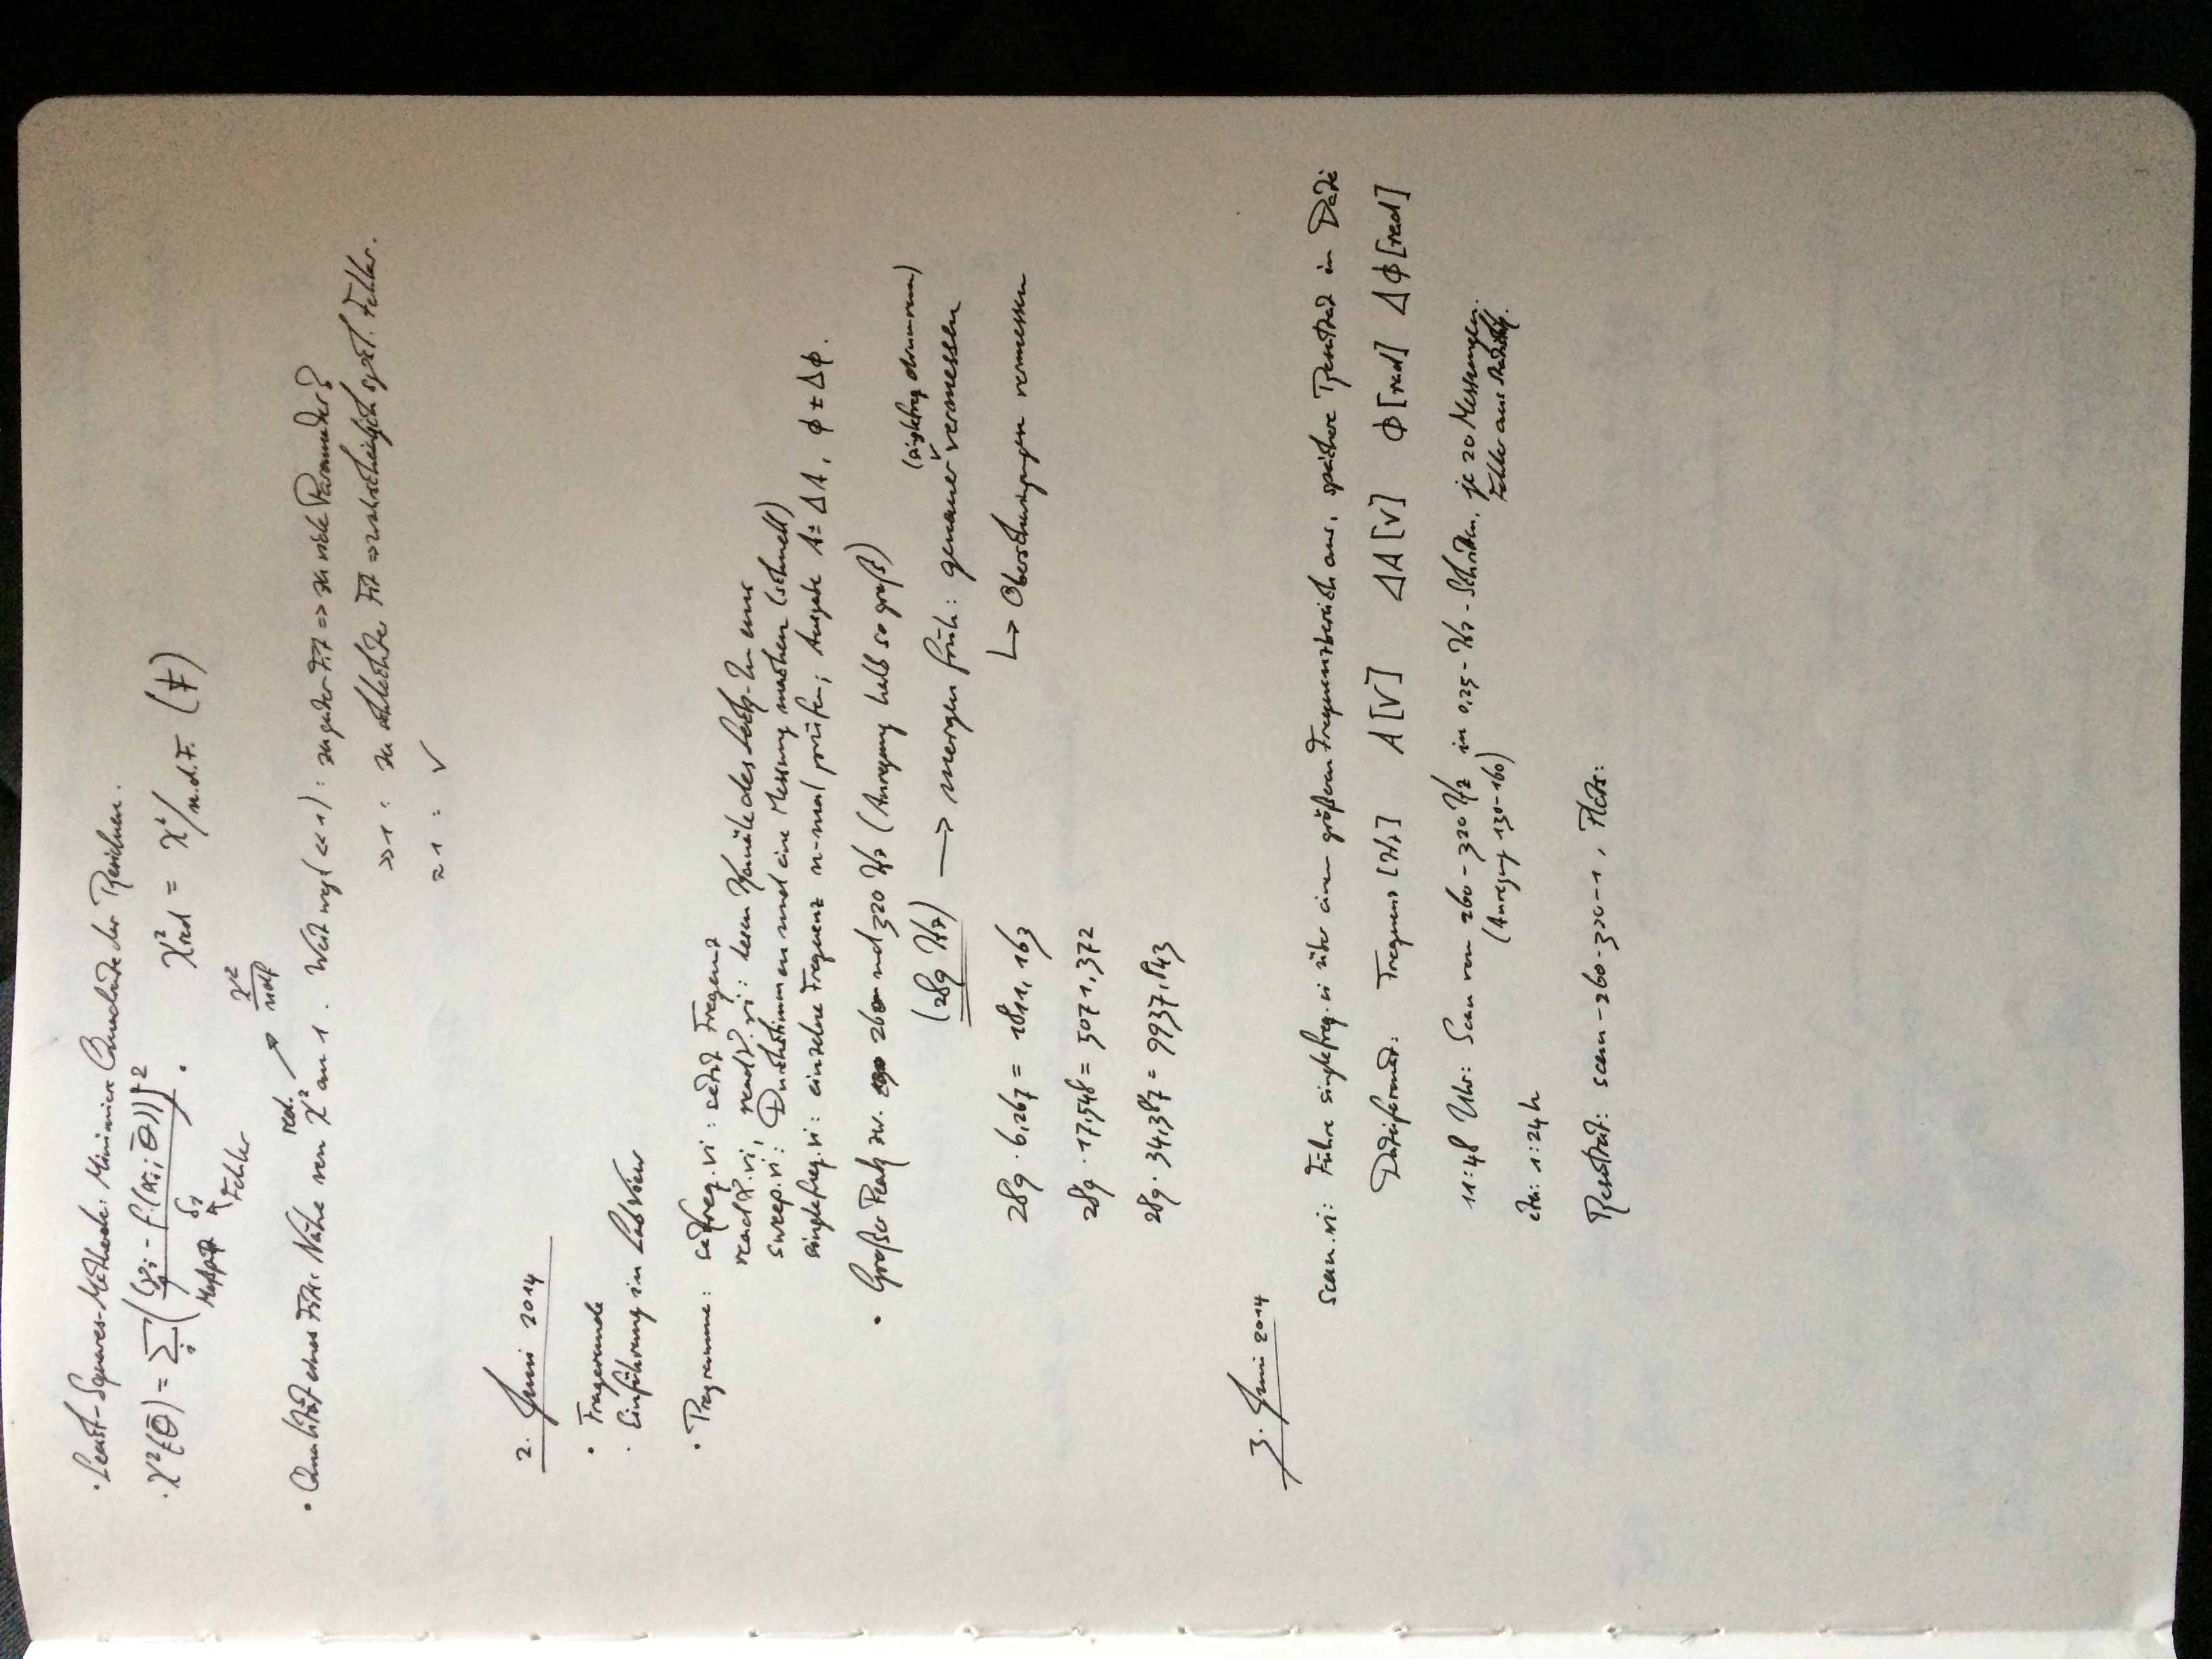 · Least-Squares-Methode: Minimiere Quadrate der Residuen.
· χ²(θ⃗) = Σᵢ ((yᵢ - f(xᵢ; θ⃗))/δᵢ)² . χ²red = χ²/n.d.F. (F)
Meßpkt Fehler
red. → χ²/ndf
· Qualität eines Fits: Nähe von χ² an 1. Weit weg (<<1): zu guter Fit => zu viele Parameter?
>>1: zu schlechter Fit => wahrscheinlich syst. Fehler.
≈1: ✓
2. Juni 2014
· Fragerunde
· Einführung in LabView
· Programme: setfreq.vi: setzt Freqenz
readX.vi, readY.vi: lesen Kanäle des Lock-In aus
sweep.vi: Durchstimmen und eine Messung machen (schnell)
singlefreq.vi: einzelne Frequenz n-mal prüfen; Ausgabe A±ΔA, φ±Δφ.
· Großer Peak zw. 260 und 320 Hz (Anregung halb so groß)
(singlefreq drumrum)
(289 Hz) → morgen früh: genauer vermessen
↳ Oberschwingungen vermessen
289 · 6,267 = 1811,163
289 · 17,548 = 5071,372
289 · 34,387 = 9937,843
3. Juni 2014
scan.vi: Führe singlefreq.vi über einen größeren Frequenzbereich aus, speichere Resultat in Datei
Dateiformat: Frequenz [Hz] A [V] ΔA [V] φ [rad] Δφ [rad]
11:48 Uhr: Scan von 260-320 Hz in 0,25-Hz-Schritten, je 20 Messungen.
(Anregung 130-160) Fehler aus
1:24h
Resultat: scan-260-320-1, Plots: